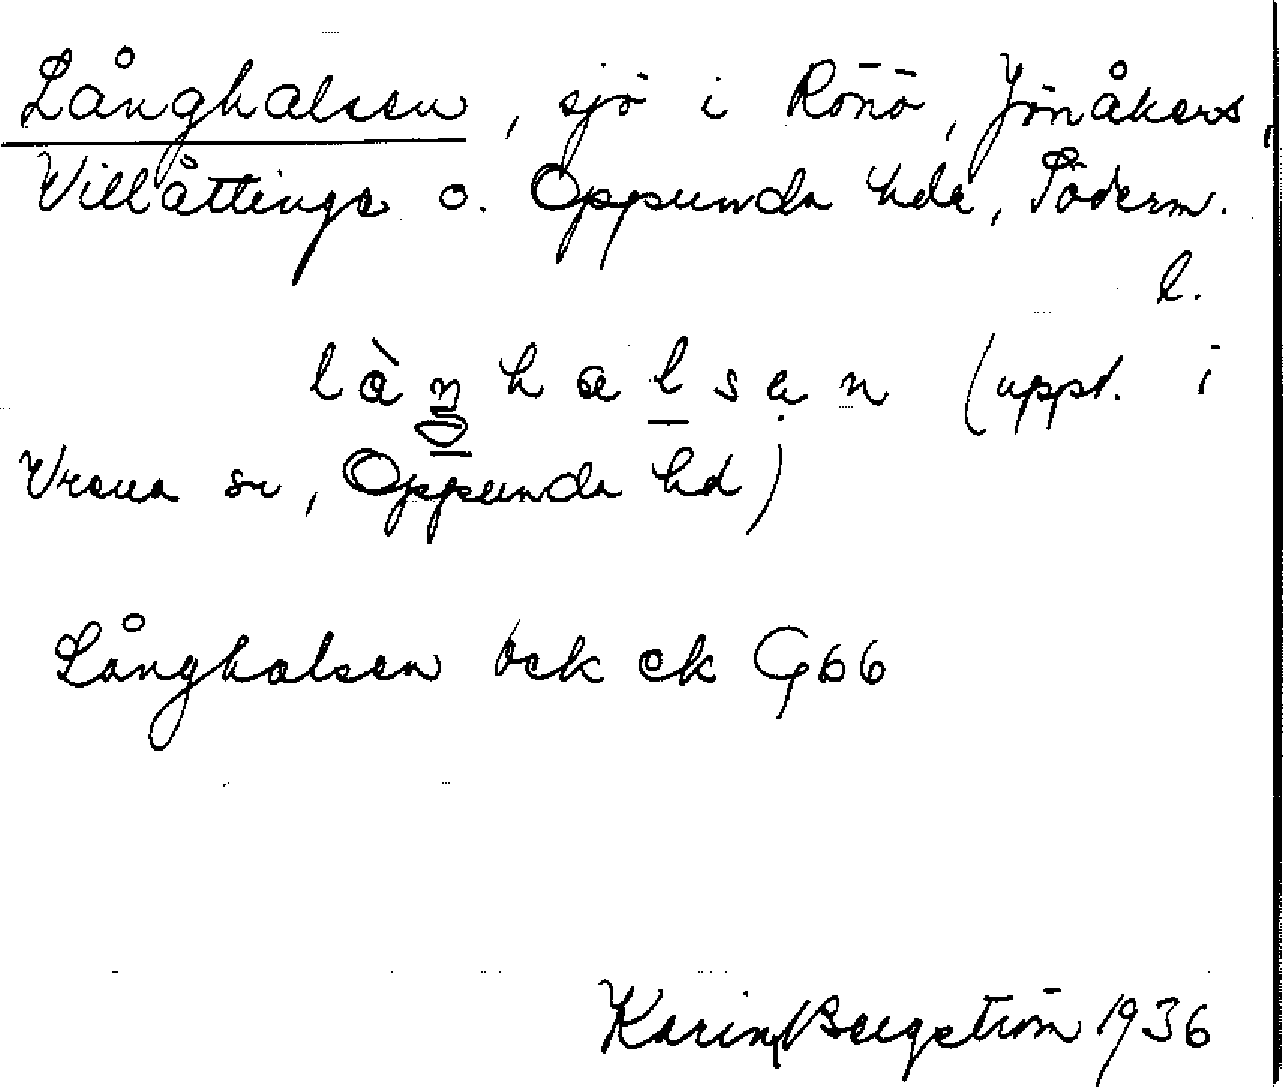 Långhalsen, sjö i Rönö, Jönåkers,
Villåttinge o. Oppunda hdr, Söderm.
l.
làŋhalsən (uppt. i
Vrena sn, Oppunda hd)
Långhalsen ock ek G66
Karin Bergström 1936